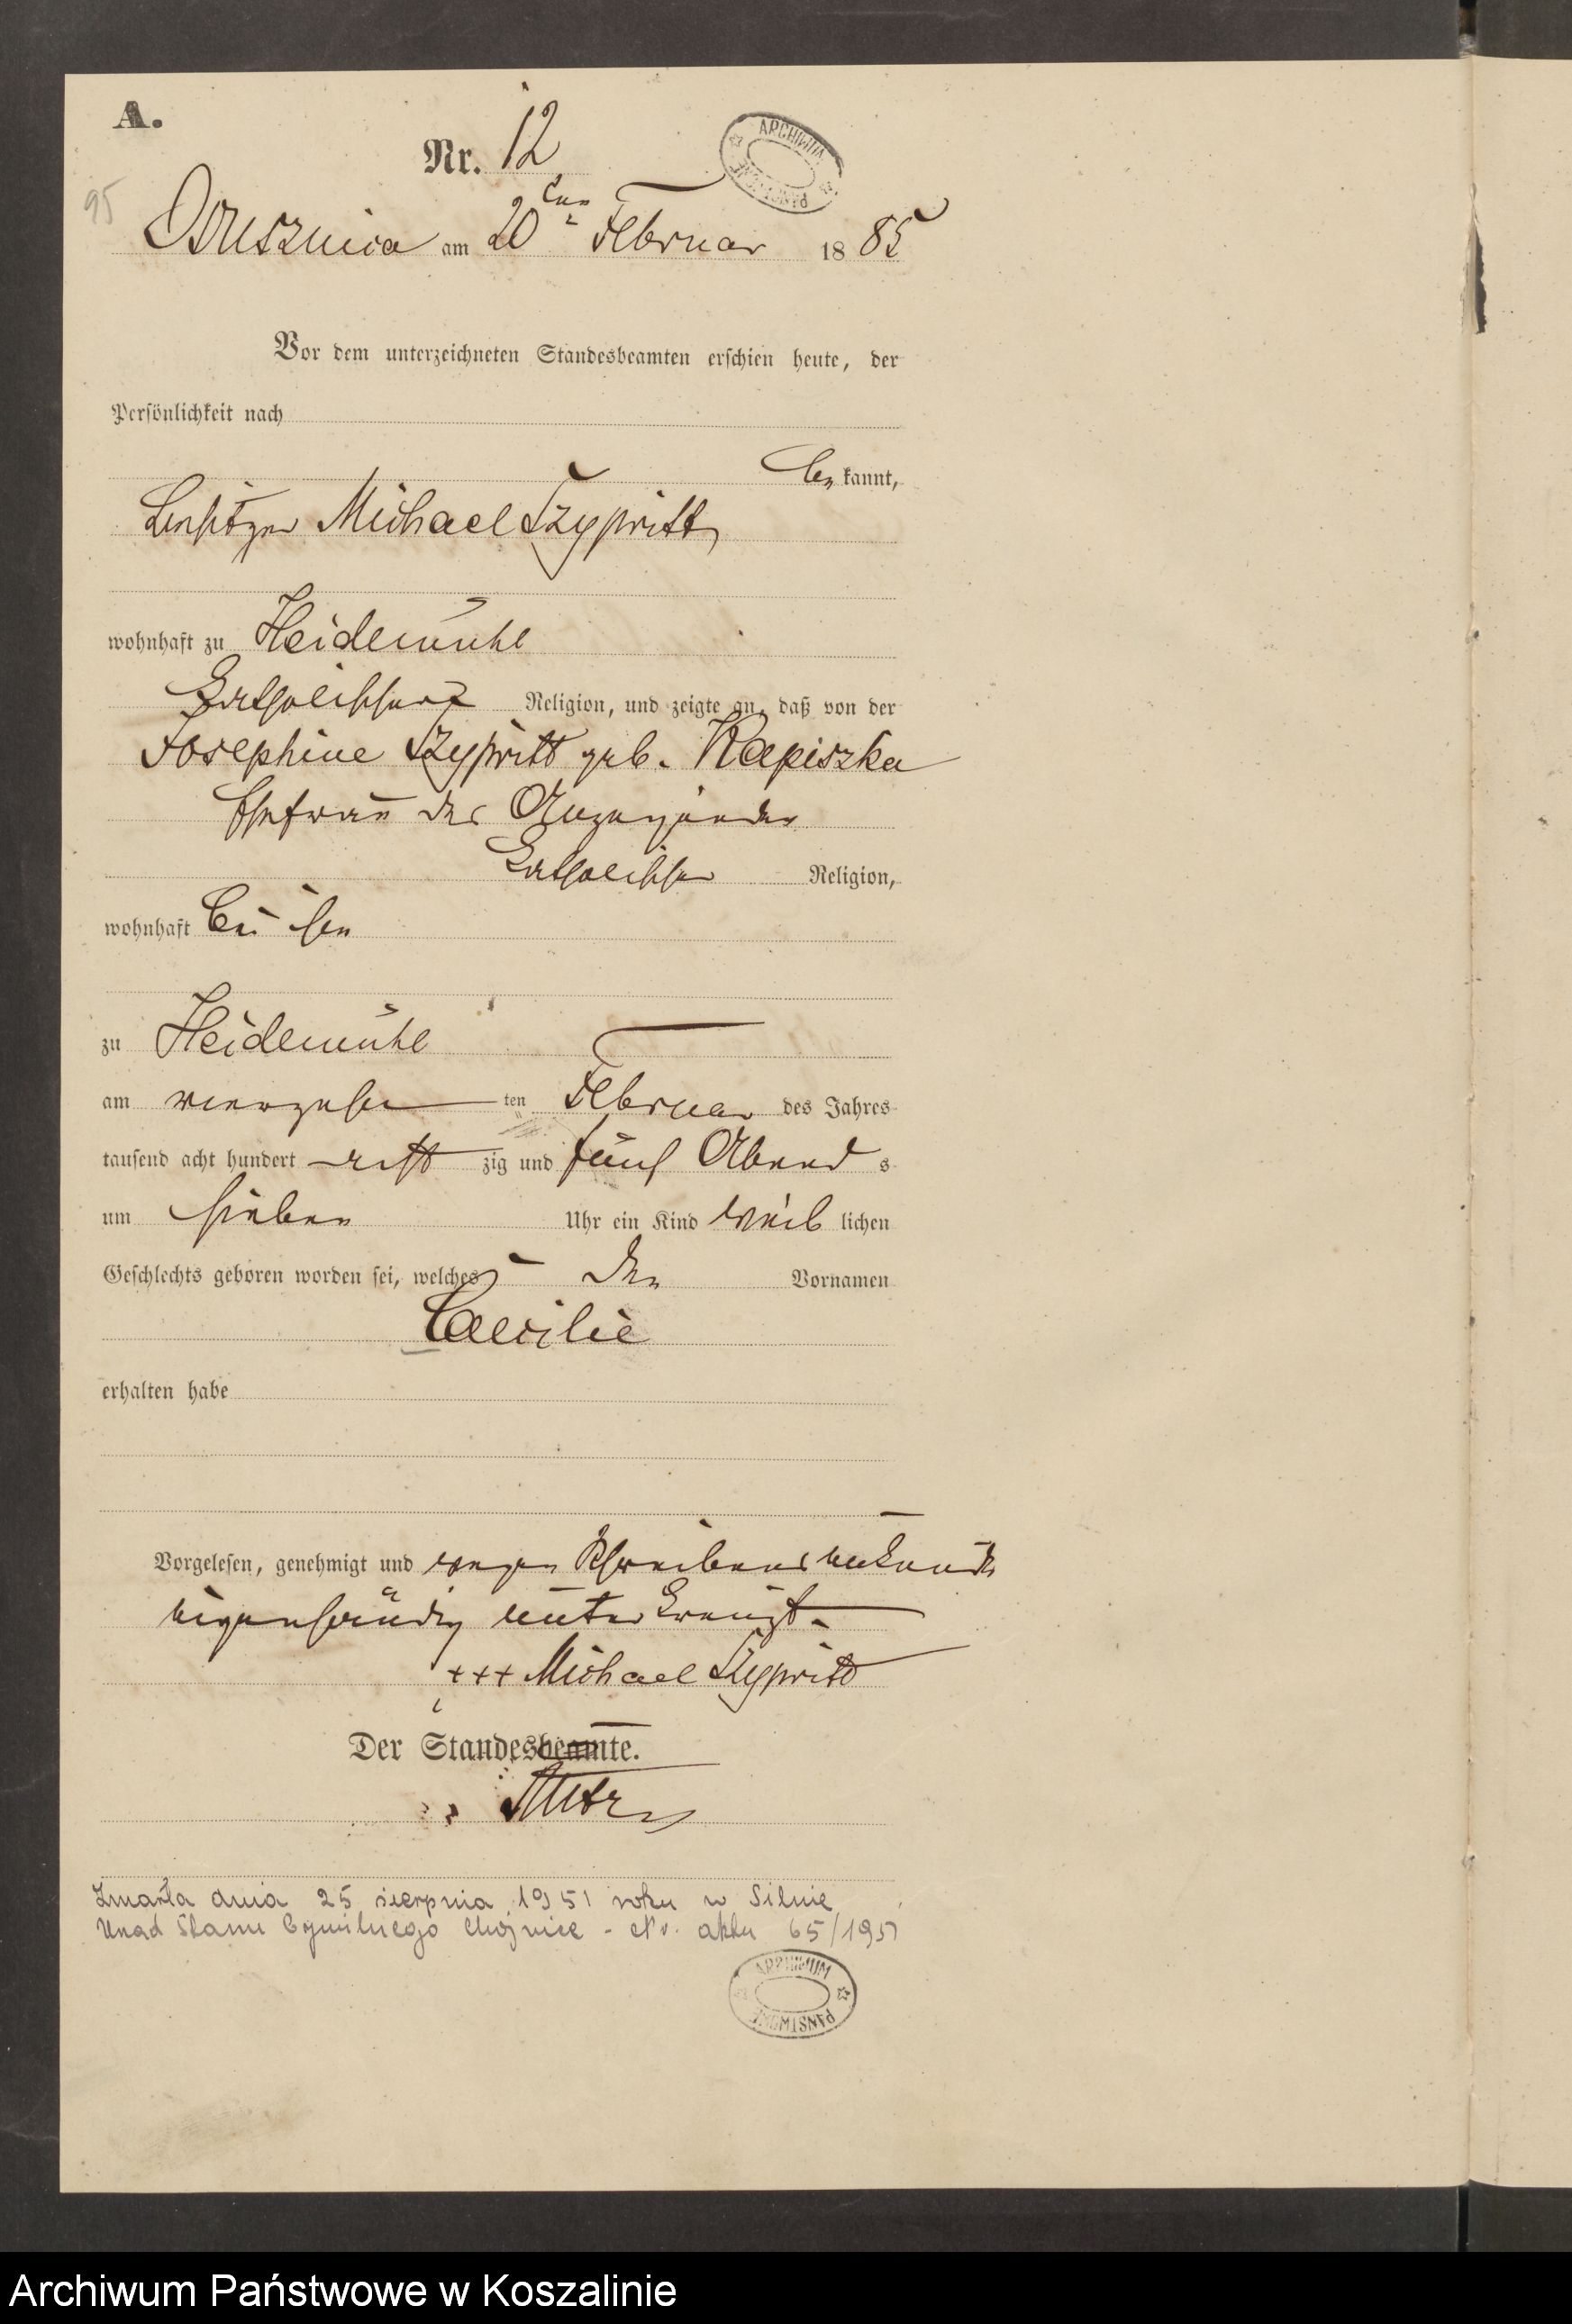 A.
Nr. 12
ARCHIWUM PAŃSTWOWE
95
Ossusznica am 20ten Februar 1885
Vor dem unterzeichneten Standesbeamten erschien heute, der
Persönlichkeit nach
be kannt,
Besitzer Michael Szypritt
wohnhaft zu Heidemühl
katholischer Religion, und zeigte an, daß von der
Josephine Szypritt geb. Kapiszka
Ehefrau des Anzeigenden
katholischer Religion,
wohnhaft bei ihm
zu Heidemühl
am vierzehn ten Februar des Jahres
tausend acht hundert acht zig und fünf Abend s
um sieben Uhr ein Kind weib lichen
Geschlechts geboren worden sei, welches den Vornamen
Caecilie
erhalten habe
Vorgelesen, genehmigt und wegen Schreibensunkunde
eigenhändig unterkreuzt.
+++ Michael Szypritt
Der Standesbeamte.
Zmarła dnia 25 sierpnia 1951 roku w Silnie
Urząd Stanu Cywilnego Chojnice - Nr. aktu 65/1951
ARCHIWUM PAŃSTWOWE
Archiwum Państwowe w Koszalinie